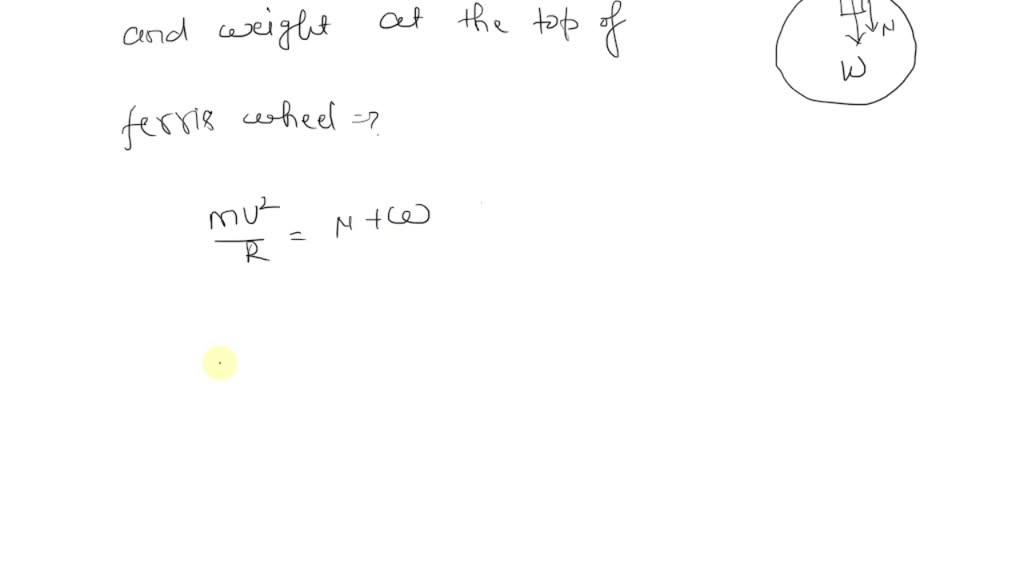 and weight at the top of
N
W
ferris wheel =?
mv²
R
= N + W